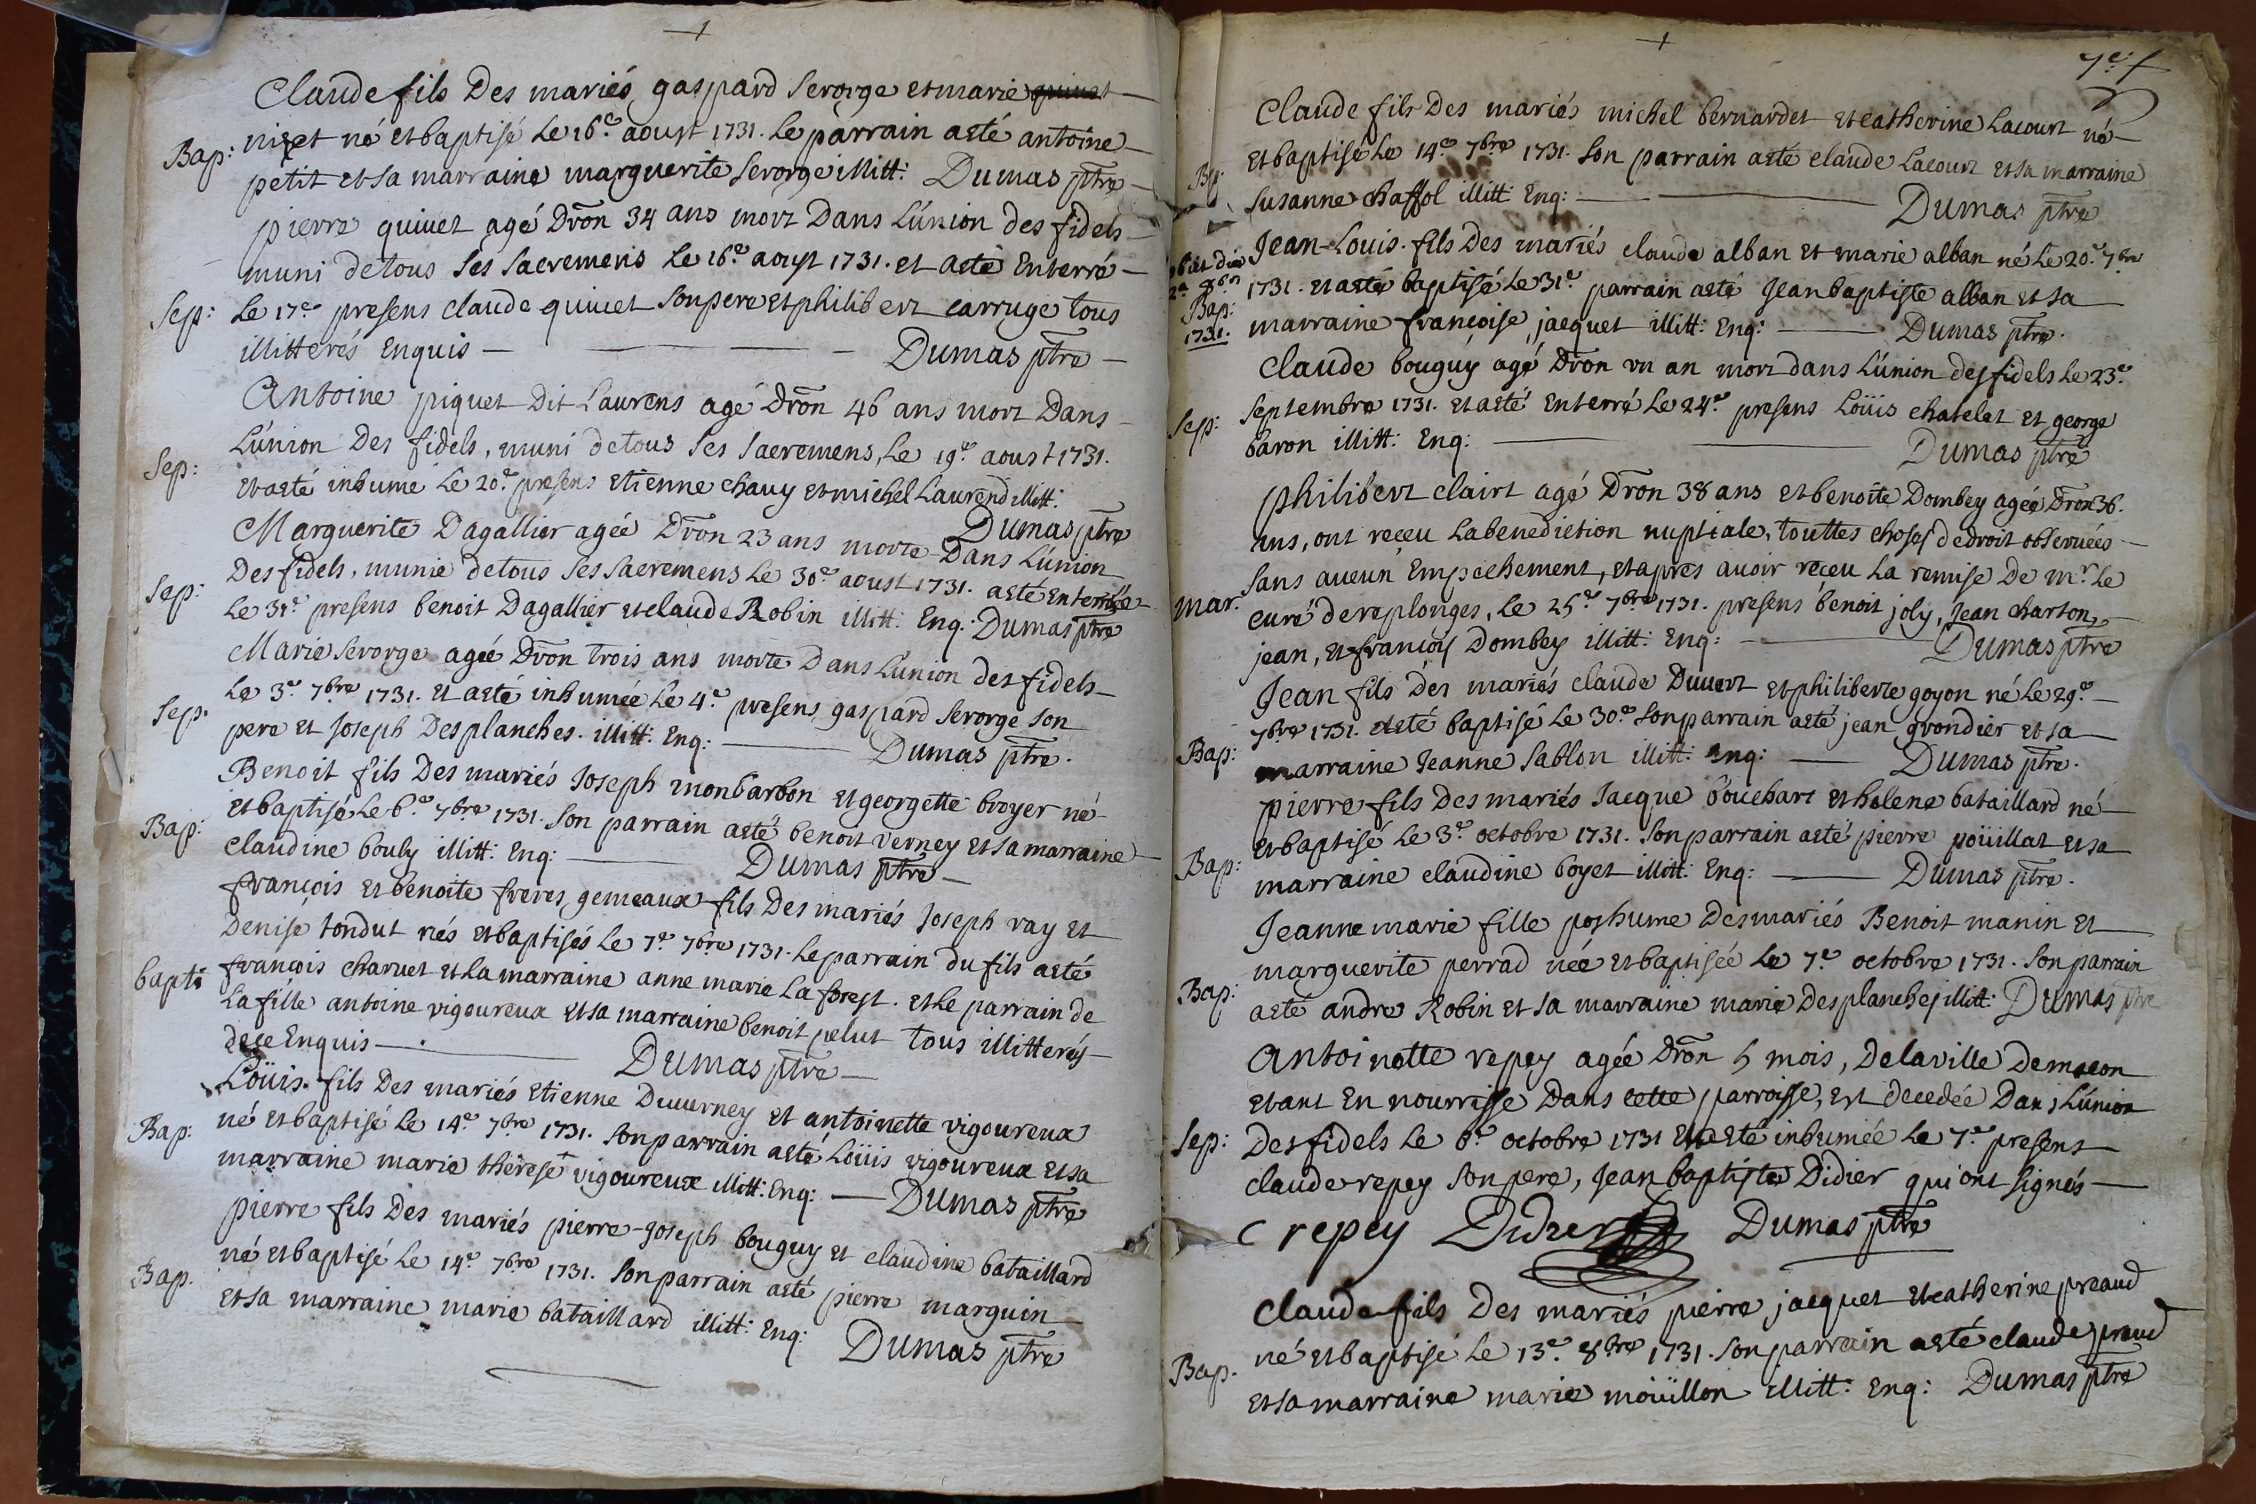 +
Claude fils Des mariés gaspard serorge et marie
Bap: niset né et baptisé Le 16.e aoust 1731. Le parrain a esté antoine
petit et sa marraine marguerite serorge illitt: Dumas ptre
pierre quiuet agé Dron 34 ans mort Dans L'union des fidels
muni de tous ses sacremens Le 16.e aoust 1731. et a esté Enterré
Sep: Le 17.e presens claude quiuet son pere et philibert carruge tous
illitterés Enquis — Dumas ptre
Antoine piquet Dit Laurens agé Dron 46 ans mort Dans
L'union Des fidels, muni de tous ses sacremens, Le 19.e aoust 1731.
Sep: et a esté inhumé Le 20.e presens Etienne chauy et michel Laurend illitt:
Dumas ptre
Marguerite Dagallier agée Dron 23 ans morte Dans L'union
Des fidels, munie de tous ses sacremens Le 30.e aoust 1731. a esté Enterrée
Sep: Le 31.e presens benoit Dagallier et claude Robin illitt: Enq: Dumas ptre
Marie serorge agée Dron trois ans morte Dans L'union des fidels
Le 3.e 7bre 1731. et a esté inhumée Le 4.e presens gaspard serorge son
Sep. pere et Joseph Desplanches. illitt: Enq: — Dumas ptre.
Benoit fils Des mariés Joseph monbarbon et georgette broyer né
et baptisé Le 6.e 7bre 1731. son parrain a esté benoit verney et sa marraine
Bap: claudine bouly illitt: Enq: — Dumas ptre
françois et benoite freres gemeaux fils Des mariés Joseph ray et
Denise tondut nés et baptisés Le 7.e 7bre 1731. Le parrain du fils a esté
bapt: françois charuet et La marraine anne marie La forest. et Le parrain de
La fille antoine vigoureux et sa marraine benoit pelut tous illitterés
de ce Enquis — Dumas ptre
Loüis. fils Des mariés Etienne Duuurney et antoinette vigoureux
Bap: né et baptisé Le 14.e 7bre 1731. son parrain a esté Loüis vigoureux et sa
marraine marie thérese vigoureux illitt: Enq: — Dumas ptre
pierre fils Des mariés pierre-Joseph bouguy et claudine bataillard
né et baptisé Le 14.e 7bre 1731. son parrain a esté pierre marguin
Bap. et sa marraine marie bataillard illitt: Enq: Dumas ptre
+
7.e f
Claude fils Des mariés michel bernardet et catherine Lacourt né
et baptisé Le 14.e 7bre 1731. son parrain a esté claude Lacourt et sa marraine
Bap: susanne chaffol illitt: Enq: — Dumas ptre
Jean-Louis. fils Des mariés claude alban et marie alban né Le 20.e 7bre
1731. et a esté baptisé Le 31.e parrain a esté Jean baptiste alban et sa
Bap: 1731. marraine françoise jacquet illitt: Enq: — Dumas ptre.
Claude bouguy agé Dron vn an mort dans L'union des fidels Le 23.e
Sep: Septembre 1731. et a esté Enterré Le 24.e presens Loüis chatelet et george
baron illitt: Enq: — Dumas ptre
philibert clairt agé Dron 38 ans et benoite Dombey agée Dron 36.
ans, ont reçeu La benediction nuptiale, touttes choses de droit obseruées
sans aucun Empechement, et apres auoir reçeu La remise De mr. Le
mar. curé de replonges, Le 25.e 7bre 1731. presens benoit joly, Jean charton,
jean, et françois Dombey illitt: Enq: — Dumas ptre
Jean fils des mariés claude Duuert et philiberte goyon né Le 29.e
7bre 1731. a esté baptisé Le 30.e son parrain a esté jean grondier et sa
Bap: marraine Jeanne sablon illitt: Enq: — Dumas ptre.
pierre fils Des mariés Jacque bouchart et helene bataillard né
et baptisé Le 3.e octobre 1731. son parrain a esté pierre poüillat et sa
Bap: marraine claudine boyet illitt: Enq: — Dumas ptre.
Jeanne marie fille poshume Des mariés Benoit manin et
marguerite perrad née et baptisée Le 7.e octobre 1731. son parrain
Bap: a esté andre Robin et sa marraine marie Desplanches illitt: Dumas ptre
Antoinette repey agée Dron 5 mois, De la ville De macon
etant En nourrisse Dans cette parroisse, est decedée Dans L'union
Sep: Des fidels Le 6.e octobre 1731 et a esté inhumée Le 7.e presens
claude repey son pere, Jean baptiste Didier qui ont signés
C repey Didier Dumas ptre
Claude fils Des mariés pierre jacquet et catherine preaud
né et baptisé Le 13.e 8bre 1731. son parrain a esté claude praud
Bap. et sa marraine marie moüillon illitt: Enq: Dumas ptre